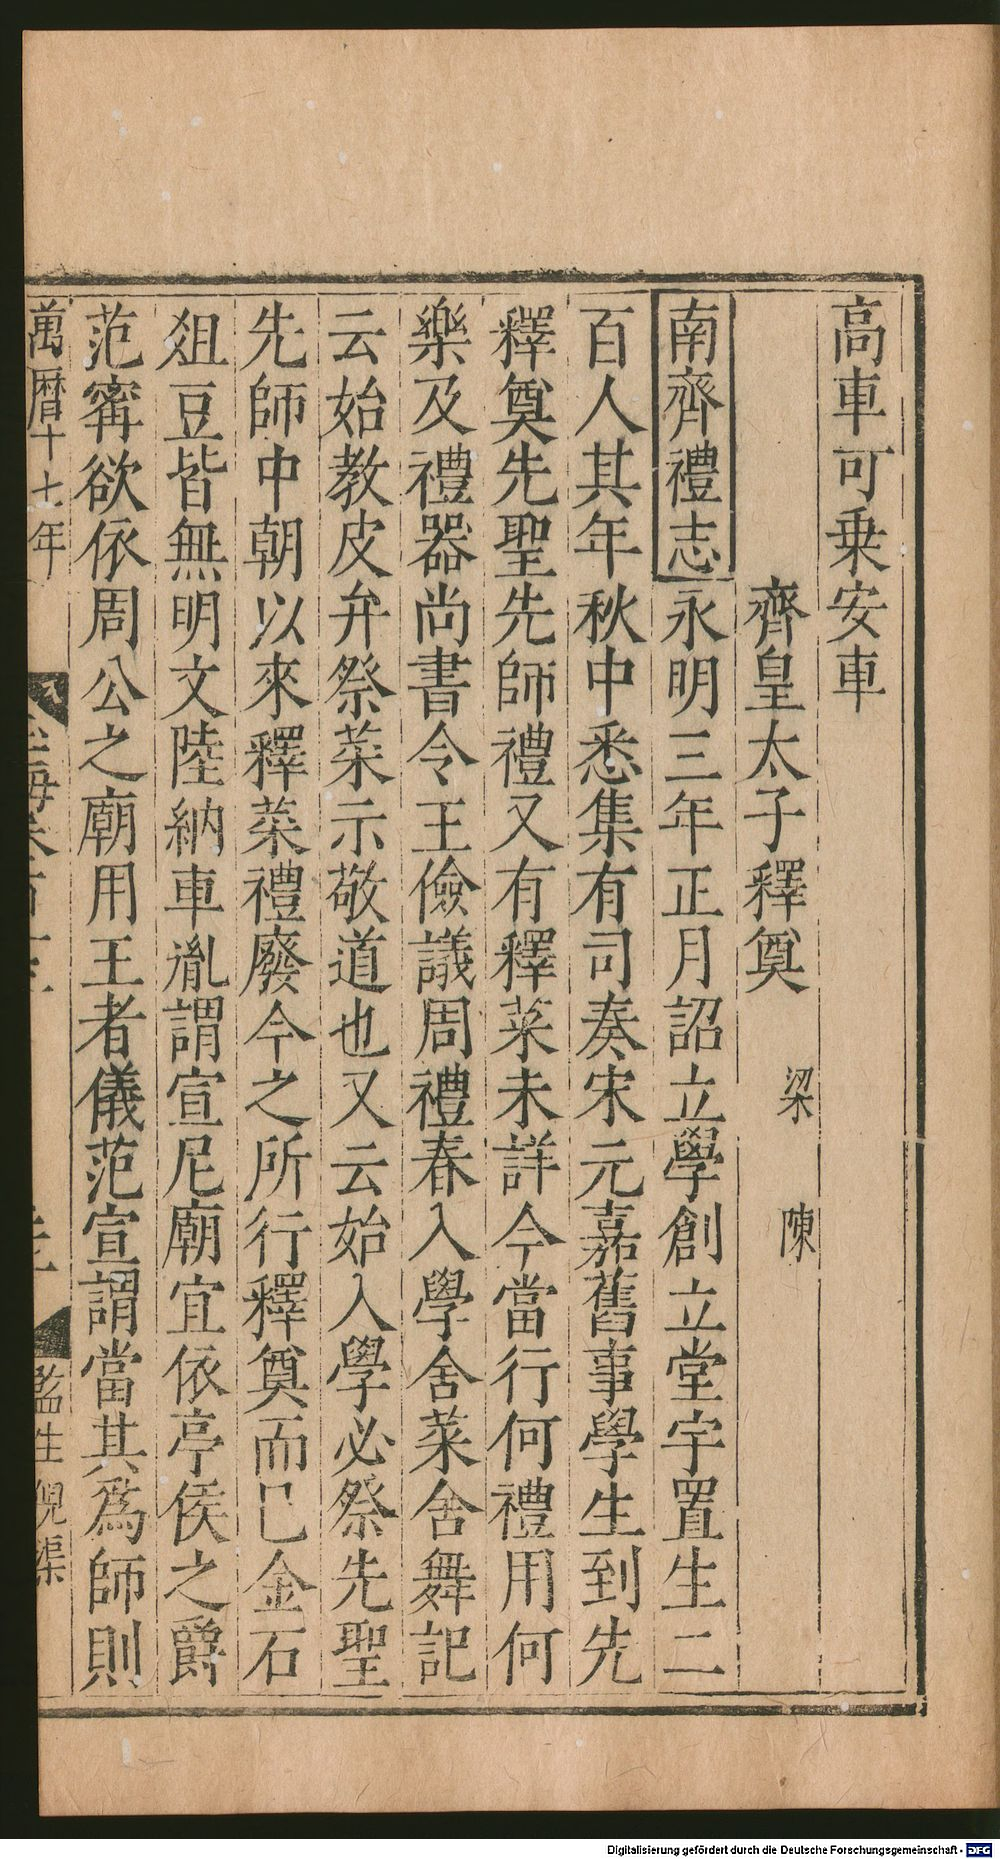 高車可乗安車
齊皇太子釋奠 梁 陳
南齊禮志永明三年正月詔立學創立堂宇置生二
百人其年秋中悉集有司奏宋元嘉舊事學生到先
釋奠先聖先師禮又有釋菜未詳今當行何禮用何
樂及禮器尚書令王儉議周禮春入學舍菜舍舞記
云始教皮弁祭菜示敬道也又云始入學必祭先聖
先師中朝以來釋菜禮廢今之所行釋奠而已金石
俎豆皆無明文陸納車胤謂宣尼廟宜依亭侯之爵
范寗欲依周公之廟用王者儀范宣謂當其爲師則
萬曆十七年
監生倪渠
Digitalisierung gefördert durch die Deutsche Forschungsgemeinschaft - DFG